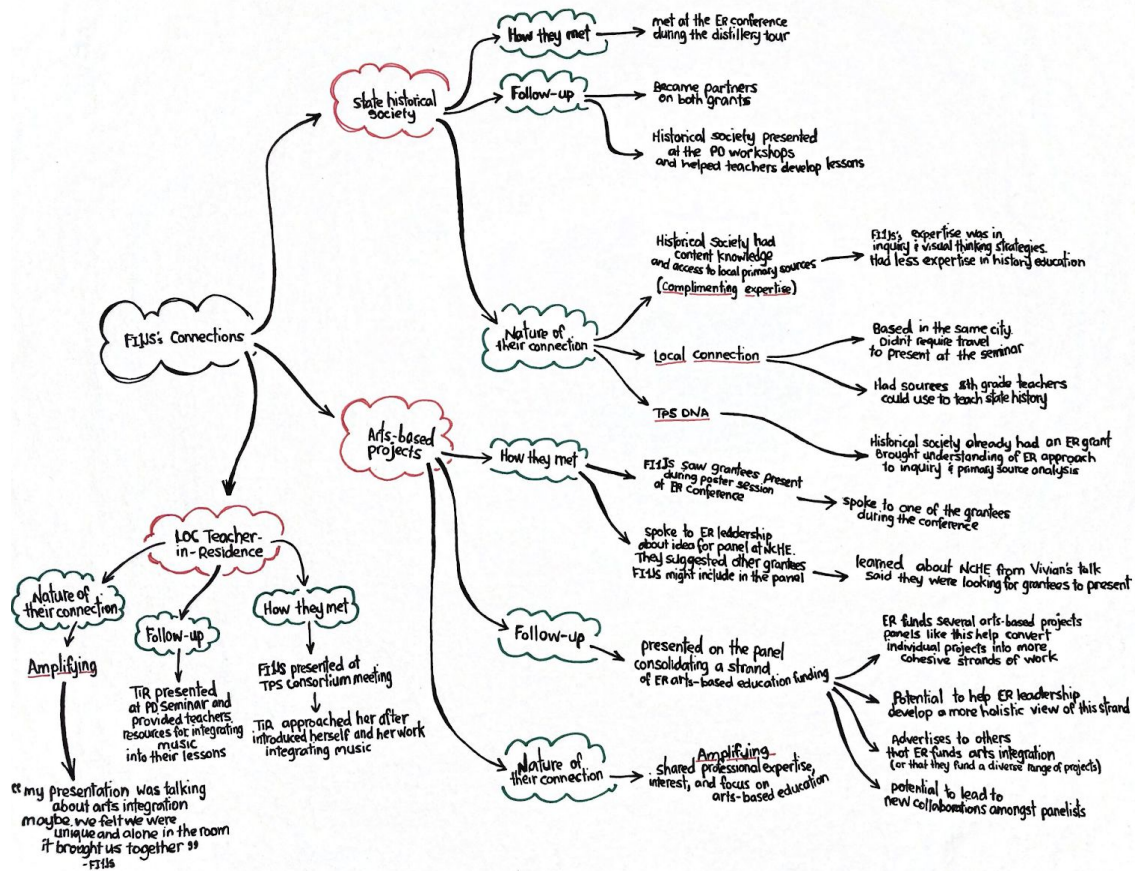 How they met
met at the ER conference
during the distillery tour
State historical
society
Follow-up
Became partners
on both grants
Historical society presented
at the PD workshops
and helped teachers develop lessons
Nature of
their connection
Historical Society had
content knowledge
and access to local primary sources
(Complimenting expertise)
FI1JS's expertise was in
inquiry & visual thinking strategies.
Had less expertise in history education
Local connection
Based in the same city.
Didnt require travel
to present at the seminar
Had sources 8th grade teachers
could use to teach state history
TPS DNA
Historical society already had an ER grant
Brought understanding of ER approach
to inquiry & primary source analysis
FI1JS's Connections
Arts-based
projects
How they met
FI1JS saw grantees present
during poster session
of ER Conference
spoke to one of the grantees
during the conference
spoke to ER leadership
about idea for panel at NCHE.
They suggested other grantees
FI1JS might include in the panel
learned about NCHE from Vivian's talk
said they were looking for grantees to present
Follow-up
presented on the panel
consolidating a strand
of ER arts-based education funding
ER funds several arts-based projects
panels like this help convert
individual projects into more
cohesive strands of work
Potential to help ER leadership
develop a more holistic view of this strand
Advertises to others
that ER funds arts integration
(or that they fund a diverse range of projects)
potential to lead to
new collaborations amongst panelists
Nature of
their connection
Amplifying
shared professional expertise,
interest, and focus on
arts-based education
LOC Teacher-
in-Residence
Nature of
their connection
Amplifying
"my presentation was talking
about arts integration
maybe we felt we were
unique and alone in the room
it brought us together"
-FI1JS
Follow-up
TiR presented
at PD seminar and
provided teachers
resources for integrating
music
into their lessons
How they met
FI1JS presented at
TPS Consortium meeting
TiR approached her after
introduced herself and her work
integrating music